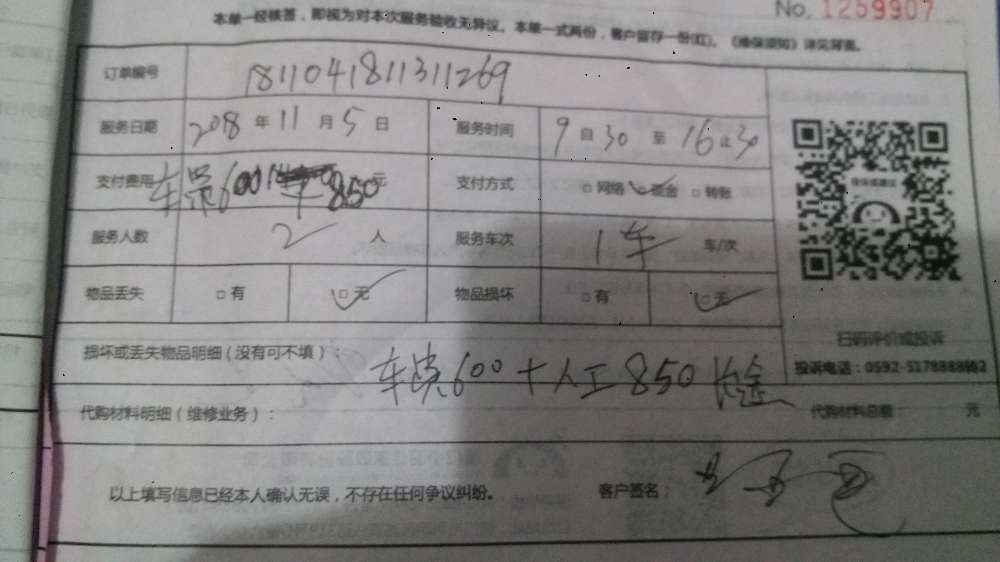 No. 1259907
本单一经核签，即视为对本次服务验收无异议。本单一式两份，客户留存一份(红)。《维保须知》详见背面。
订单编号 1811041811311269
服务日期 2018 年 11 月 5 日 服务时间 9 自 30 至 16 止 30
支付费用 600 850 元 支付方式 □ 网络 现金 □ 转账
服务人数 2 人 服务车次 1车 车/次
物品丢失 □ 有 □ 无 物品损坏 □ 有 □ 无
扫码评价或投诉
损坏或丢失物品明细（没有可不填）：
投诉电话：0592-5178888转2
600 + 人工 850
代购材料明细（维修业务）： 代购材料总额： 元
以上填写信息已经本人确认无误，不存在任何争议纠纷。 客户签名：